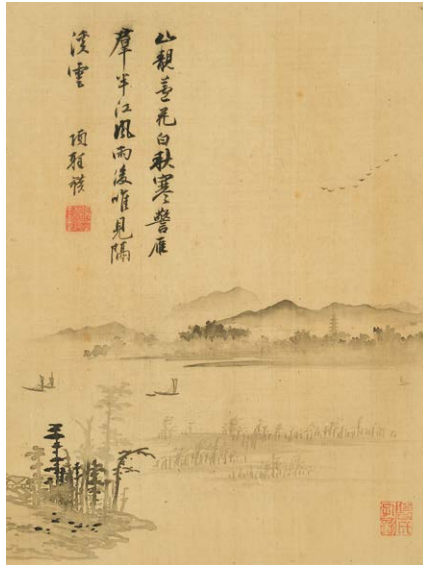 山靚蘆花白秋寒警雁
羣半江風雨後唯見隔
溪雲 項聖謨